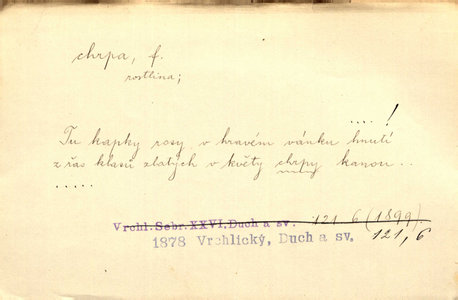 chrpa, f.
rostlina;
.... !
Tu kapky rosy v hravém vánku hnutí
z řas klasů zlatých v květy chrpy kanou ..
.....
Vrchl. Sebr. XXVI, Duch a sv. 121. 6 (1899)
1878 Vrchlický, Duch a sv. 121, 6